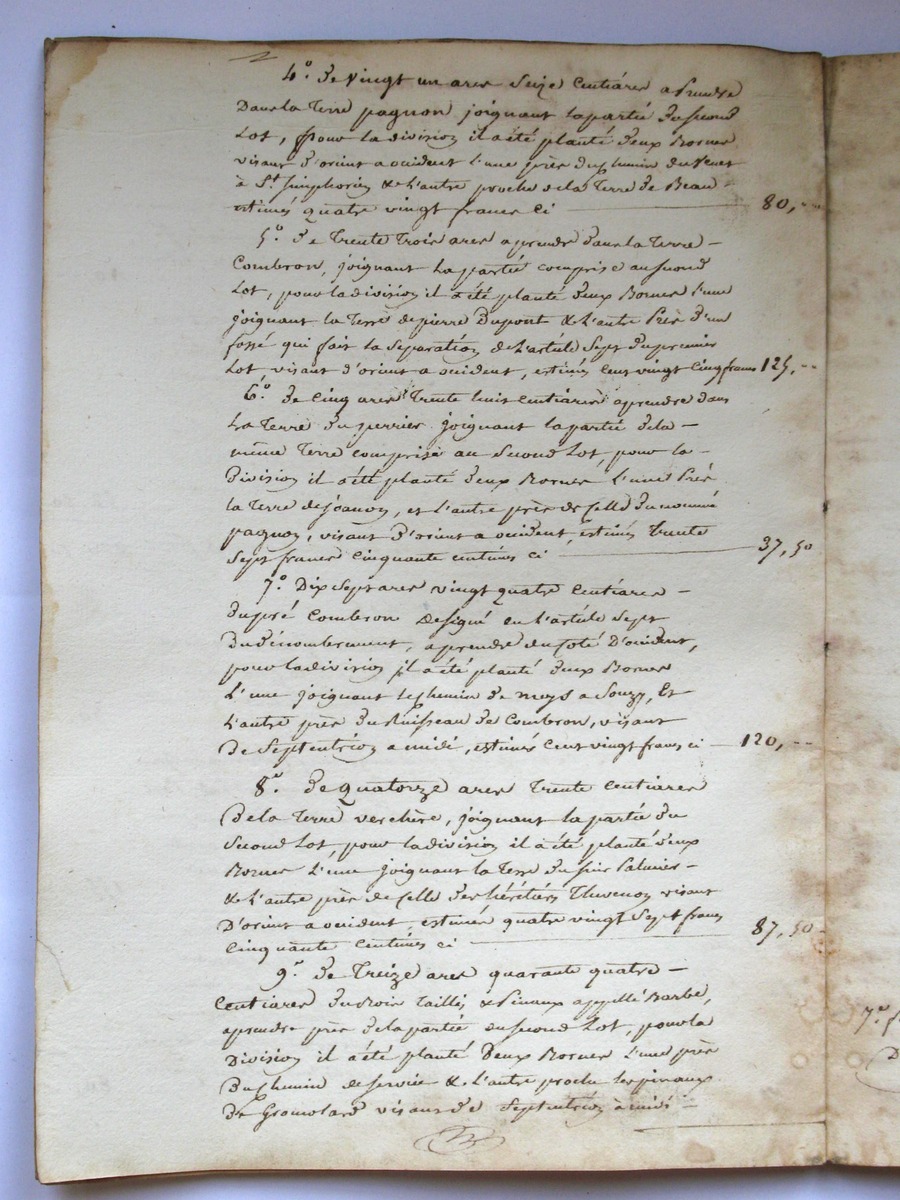 4.° De vingt un ares seize centiares a prendre
Dans la terre pagnon joignant la partie du second
Lot, pour la division il a été planté deux Bornes
visant d'orient a occident l'une près du chemin
à St. Simphorien & L'autre proche de la Terre de Beau
estimés quatre vingt francs Ci 80,--
5.° De Trente Trois ares a prendre dans la Terre
Combron, joignant La partie comprise au second
Lot, pour la division il a été planté deux Bornes l'une
joignant la Terre de pierre Dupont & l'autre Près d'un
fossé qui fait la séparation de L'article Sept du premier
Lot visant d'orient a occident, estimés cent vingt cinq francs 125,--
6.° De Cinq ares Trente huit centiares a prendre dans
La Terre du perrier joignant la partie de la
même Terre comprise au Second Lot, pour la
Division il a été planté deux Bornes L'une Près
la Terre de joannon, et l'autre près de celle du nommé
pagnon, visant d'orient a occident estimés trente
Sept francs cinquante centimes ci 37,50
7.° Dix Sept ares vingt quatre Centiares
Du pré Combron Designé en l'article Sept
Du dénombrement, a prendre du coté D'occident,
pour la division il a été planté deux Bornes
L'une joignant le chemin de meys a Souzy, Et
L'autre près du Ruisseau de Combron, visant
De Septentrion a midi, estimés Cent vingt francs ci 120,--
8.° De quatorze ares Trente centiares
De la Terre verchère, joignant la partie du
Second Lot, pour la division il a été planté deux
Bornes L'une joignant la Terre du sieur Palmier
& L'autre près de celle des héritiers Thevenon visant
D'orient a occident estimés quatre vingt Sept francs
Cinquante Centimes ci 87,50
9.° De Treize ares quarante quatre
Centiares Du Bois Taillis & Pinaux appellé Barbe,
a prendre près de la partie du Second Lot, pour la
Division il a été planté Deux Bornes L'une près
Du chemin de service & L'autre proche les pinaux
De Gromolard visant de Septentrion à midi
7.°